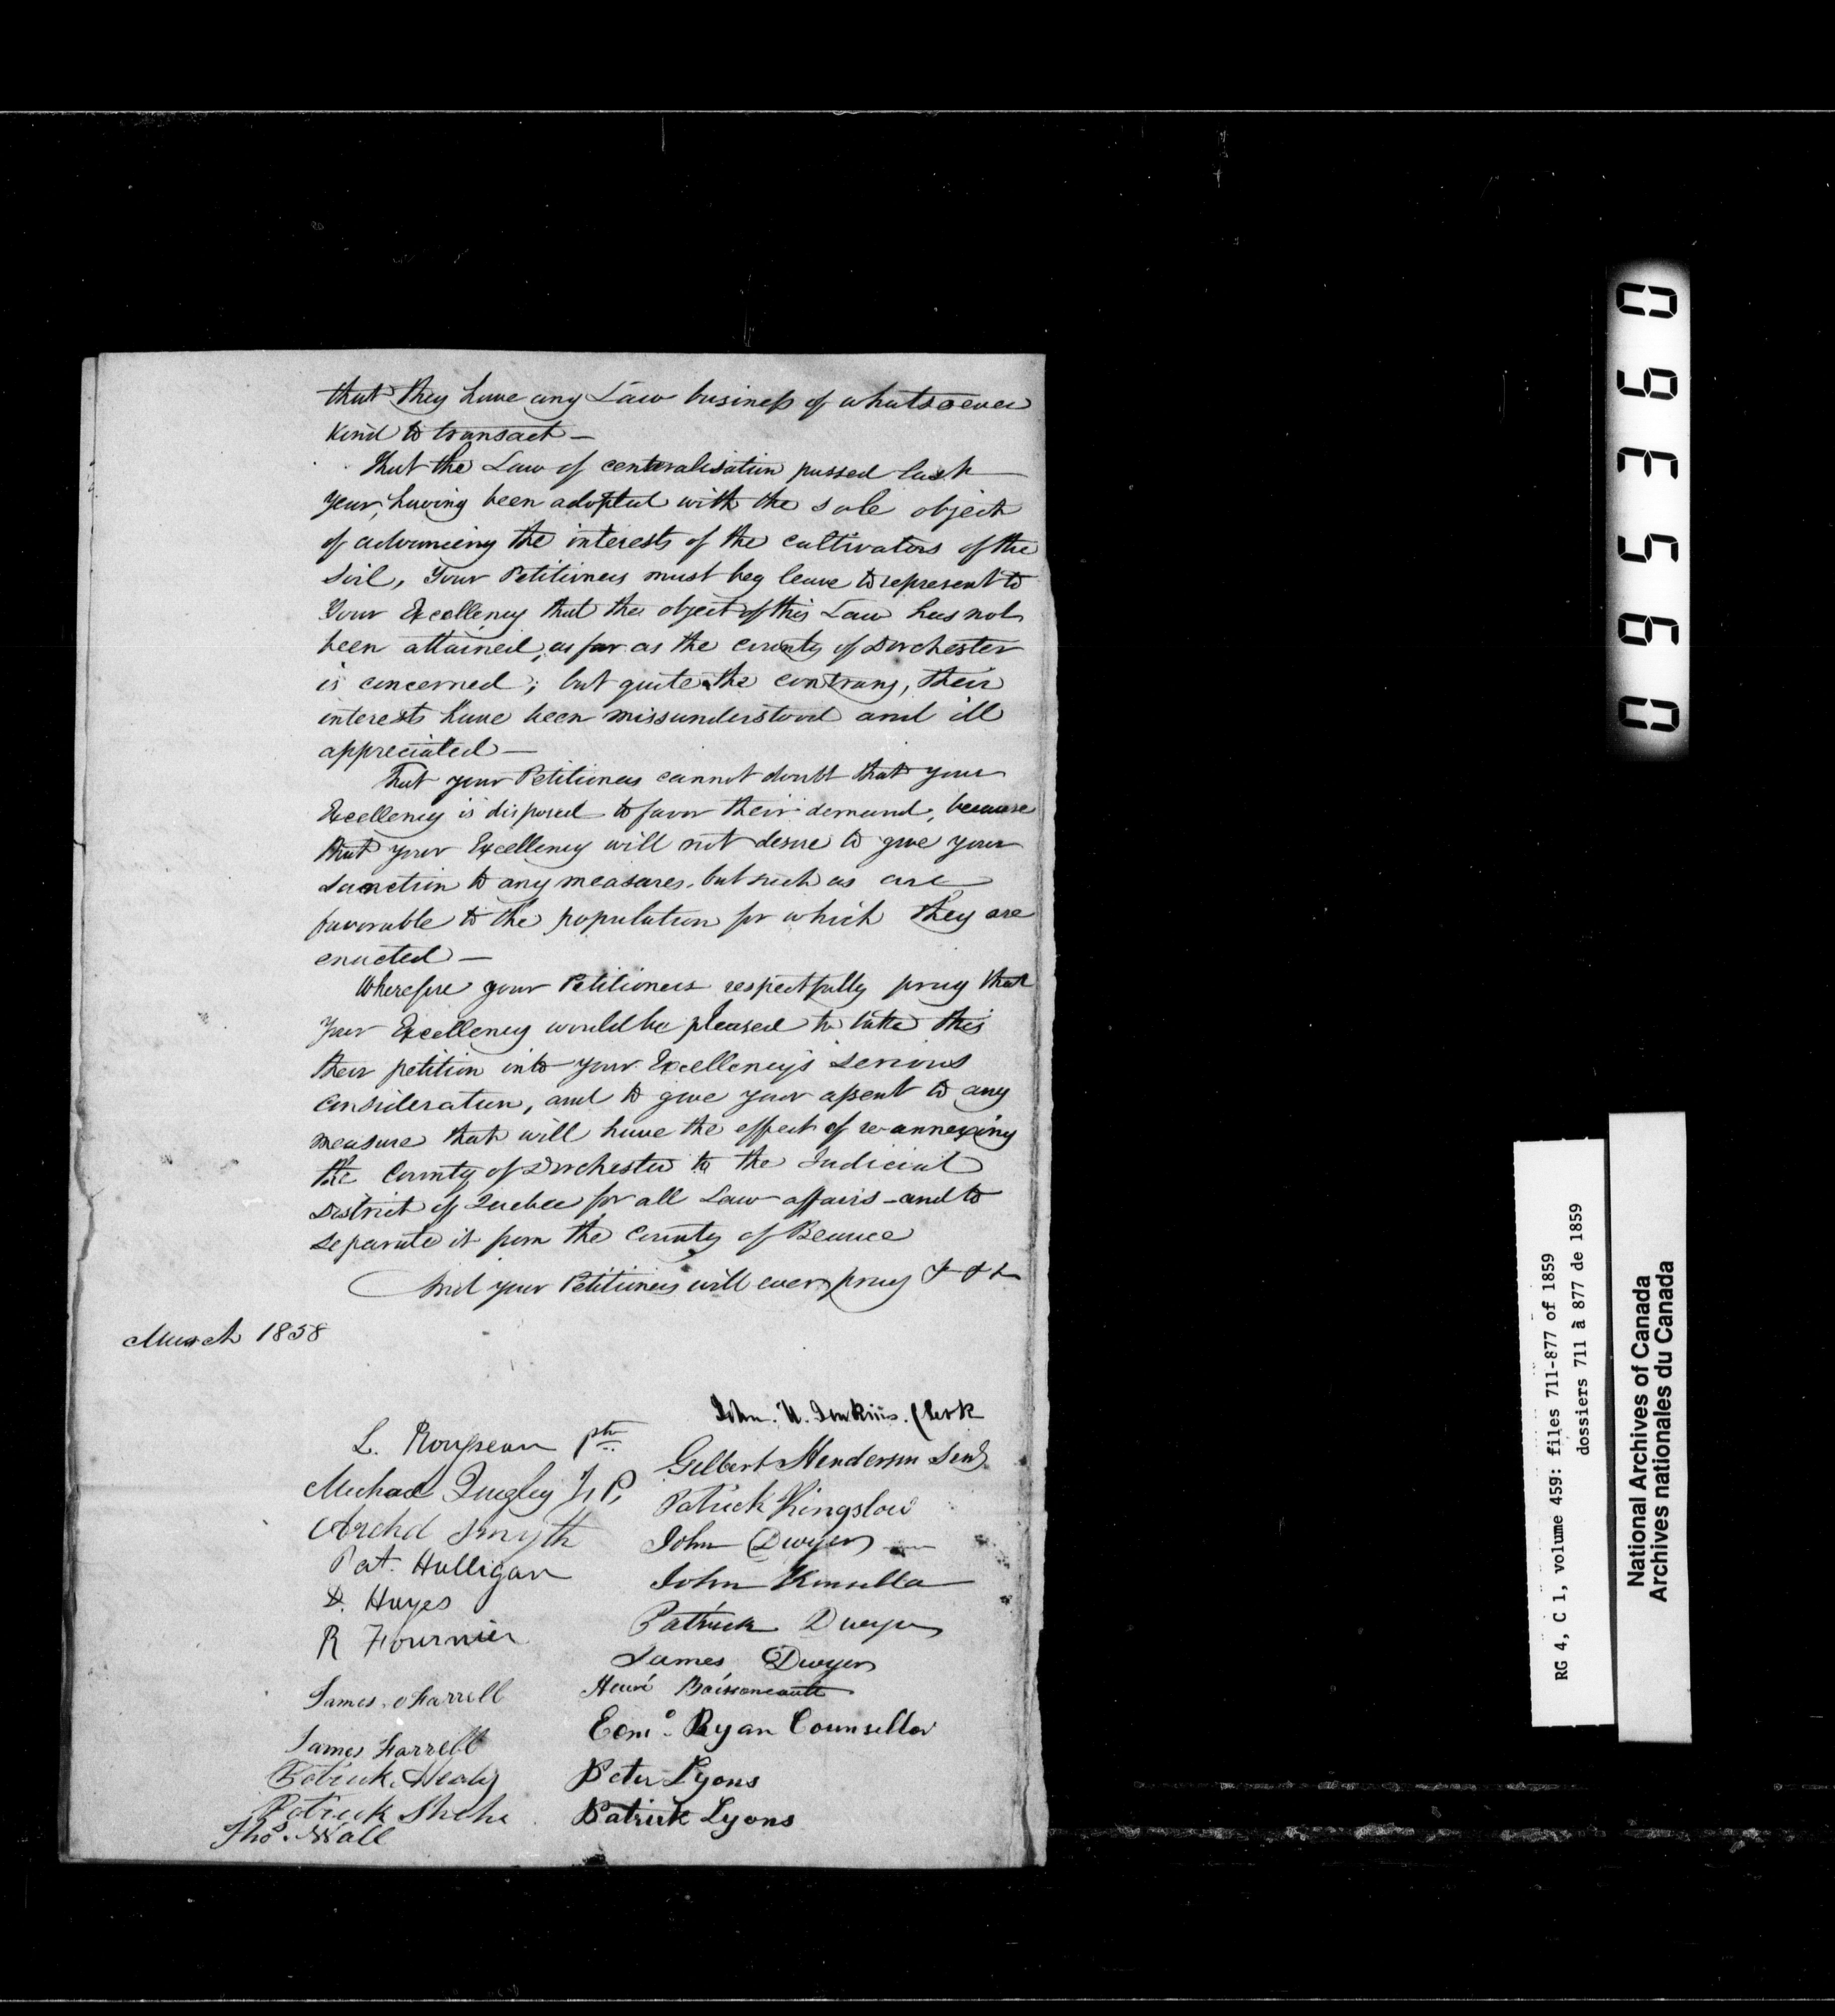 that they have any Law business of whatsoever
kind to transact —
That the Law of centeralisation passed last
year, having been adopted with the sole object
of advancing the interests of the cultivators of the
Soil, Your Petitioners must beg leave to represent to
Your Excellency that the object of this Law has not
been attained, as far as the county of Dorchester
is concerned; but quite the contrary, their
interests have been missunderstood and ill
appreciated —
That your Petitioners cannot doubt that your
Excellency is disposed to favor their demand, because
that your Excellency will not desire to give your
sanction to any measures, but such as are
favorable to the population for which they are
enacted —
Wherefore your Petitioners respectfully pray that
Your Excellency would be pleased to take this
their petition into your Excellency's serious
consideration, and to give your assent to any
measure that will have the effect of re-annexing
the County of Dorchester to the Judicial
District of Quebec for all Law affairs - and to
separate it from the County of Beauce
And your Petitioners will ever pray & & &
March 1858
John. H. Jenkins. Clerk
L. Rousseau ptre
Gilbert Henderson Senr
Michael Quigley J. P.
Patrick Kingslow
Archd Smyth
John Dwyer
Pat. Hulligan
John Kinsella
D. Hayes
Patrick Dwyer
R Fournier
James Dwyer
James. O Farrell
Henri Boissoneault
James Farrell
Edmd. Ryan Counsellor
Patrick Healy
Peter Lyons
Patrick Shehe
Patrick Lyons
Thos. Wall
095360
RG 4, C 1, volume 459: files 711-877 of 1859
dossiers 711 à 877 de 1859
National Archives of Canada
Archives nationales du Canada